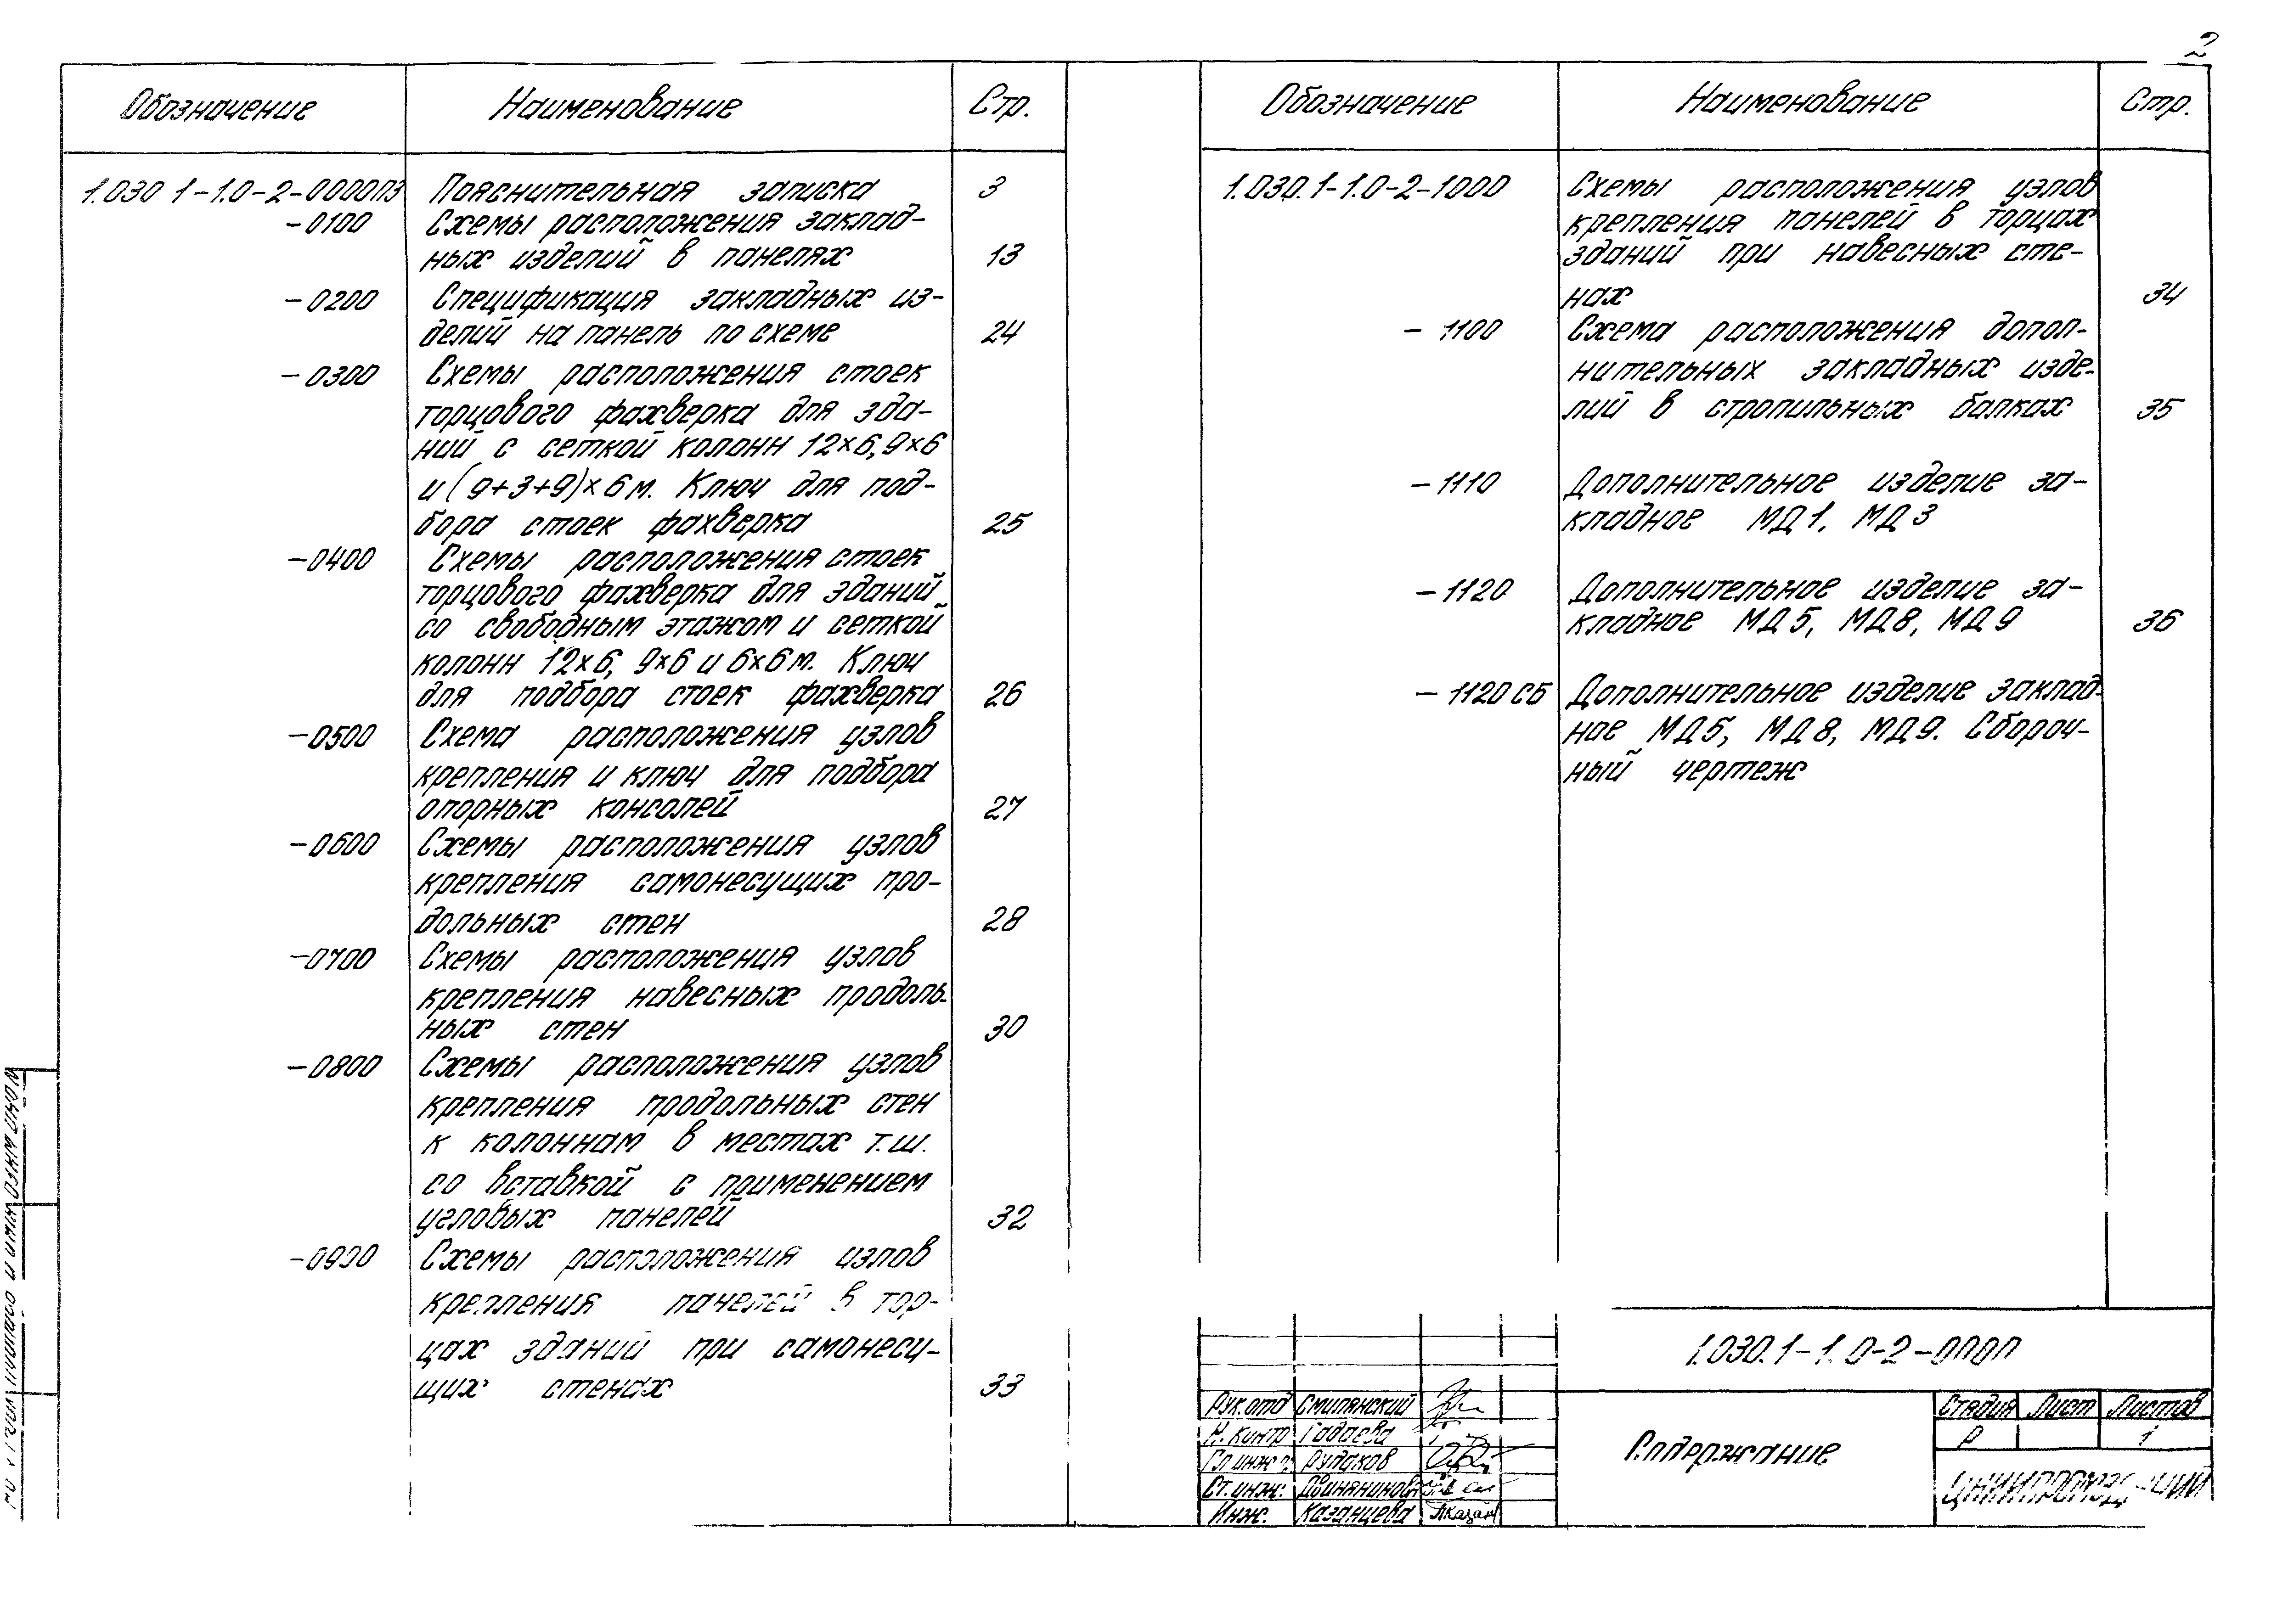 2
Обозначение Наименование Стр.
1.030 1-1.0-2-0000ПЗ Пояснительная записка 3
-0100 Схемы расположения заклад-
ных изделий в панелях 13
-0200 Спецификация закладных из-
делий на панель по схеме 24
-0300 Схемы расположения стоек
торцового фахверка для зда-
ний с сеткой колонн 12×6, 9×6
и (9+3+9)×6м. Ключ для под-
бора стоек фахверка 25
-0400 Схемы расположения стоек
торцового фахверка для зданий
со свободным этажом и сеткой
колонн 12×6, 9×6 и 6×6м. Ключ
для подбора стоек фахверка 26
-0500 Схема расположения узлов
крепления и ключ для подбора
опорных консолей 27
-0600 Схемы расположения узлов
крепления самонесущих про-
дольных стен 28
-0700 Схемы расположения узлов
крепления навесных продоль-
ных стен 30
-0800 Схемы расположения узлов
крепления продольных стен
к колоннам в местах т.ш.
со вставкой с применением
угловых панелей 32
-0900 Схемы расположения узлов
крепления панелей в тор-
цах зданий при самонесу-
щих стенах 33
Обозначение Наименование Стр.
1.030.1-1.0-2-1000 Схемы расположения узлов
крепления панелей в торцах
зданий при навесных сте-
нах 34
-1100 Схема расположения допол-
нительных закладных изде-
лий в стропильных балках 35
-1110 Дополнительное изделие за-
кладное МД1, МД3
-1120 Дополнительное изделие за-
кладное МД5, МД8, МД9 36
-1120СБ Дополнительное изделие заклад-
ное МД5, МД8, МД9. Сбороч-
ный чертеж
1.030.1-1.0-2-0000
Рук.отд Смилянский
Н. Контр Гадаева
Гл инж п. Рудаков
Ст.инж.
Инж. Казанцева
Содержание
Стадия Лист Листов
Р 1